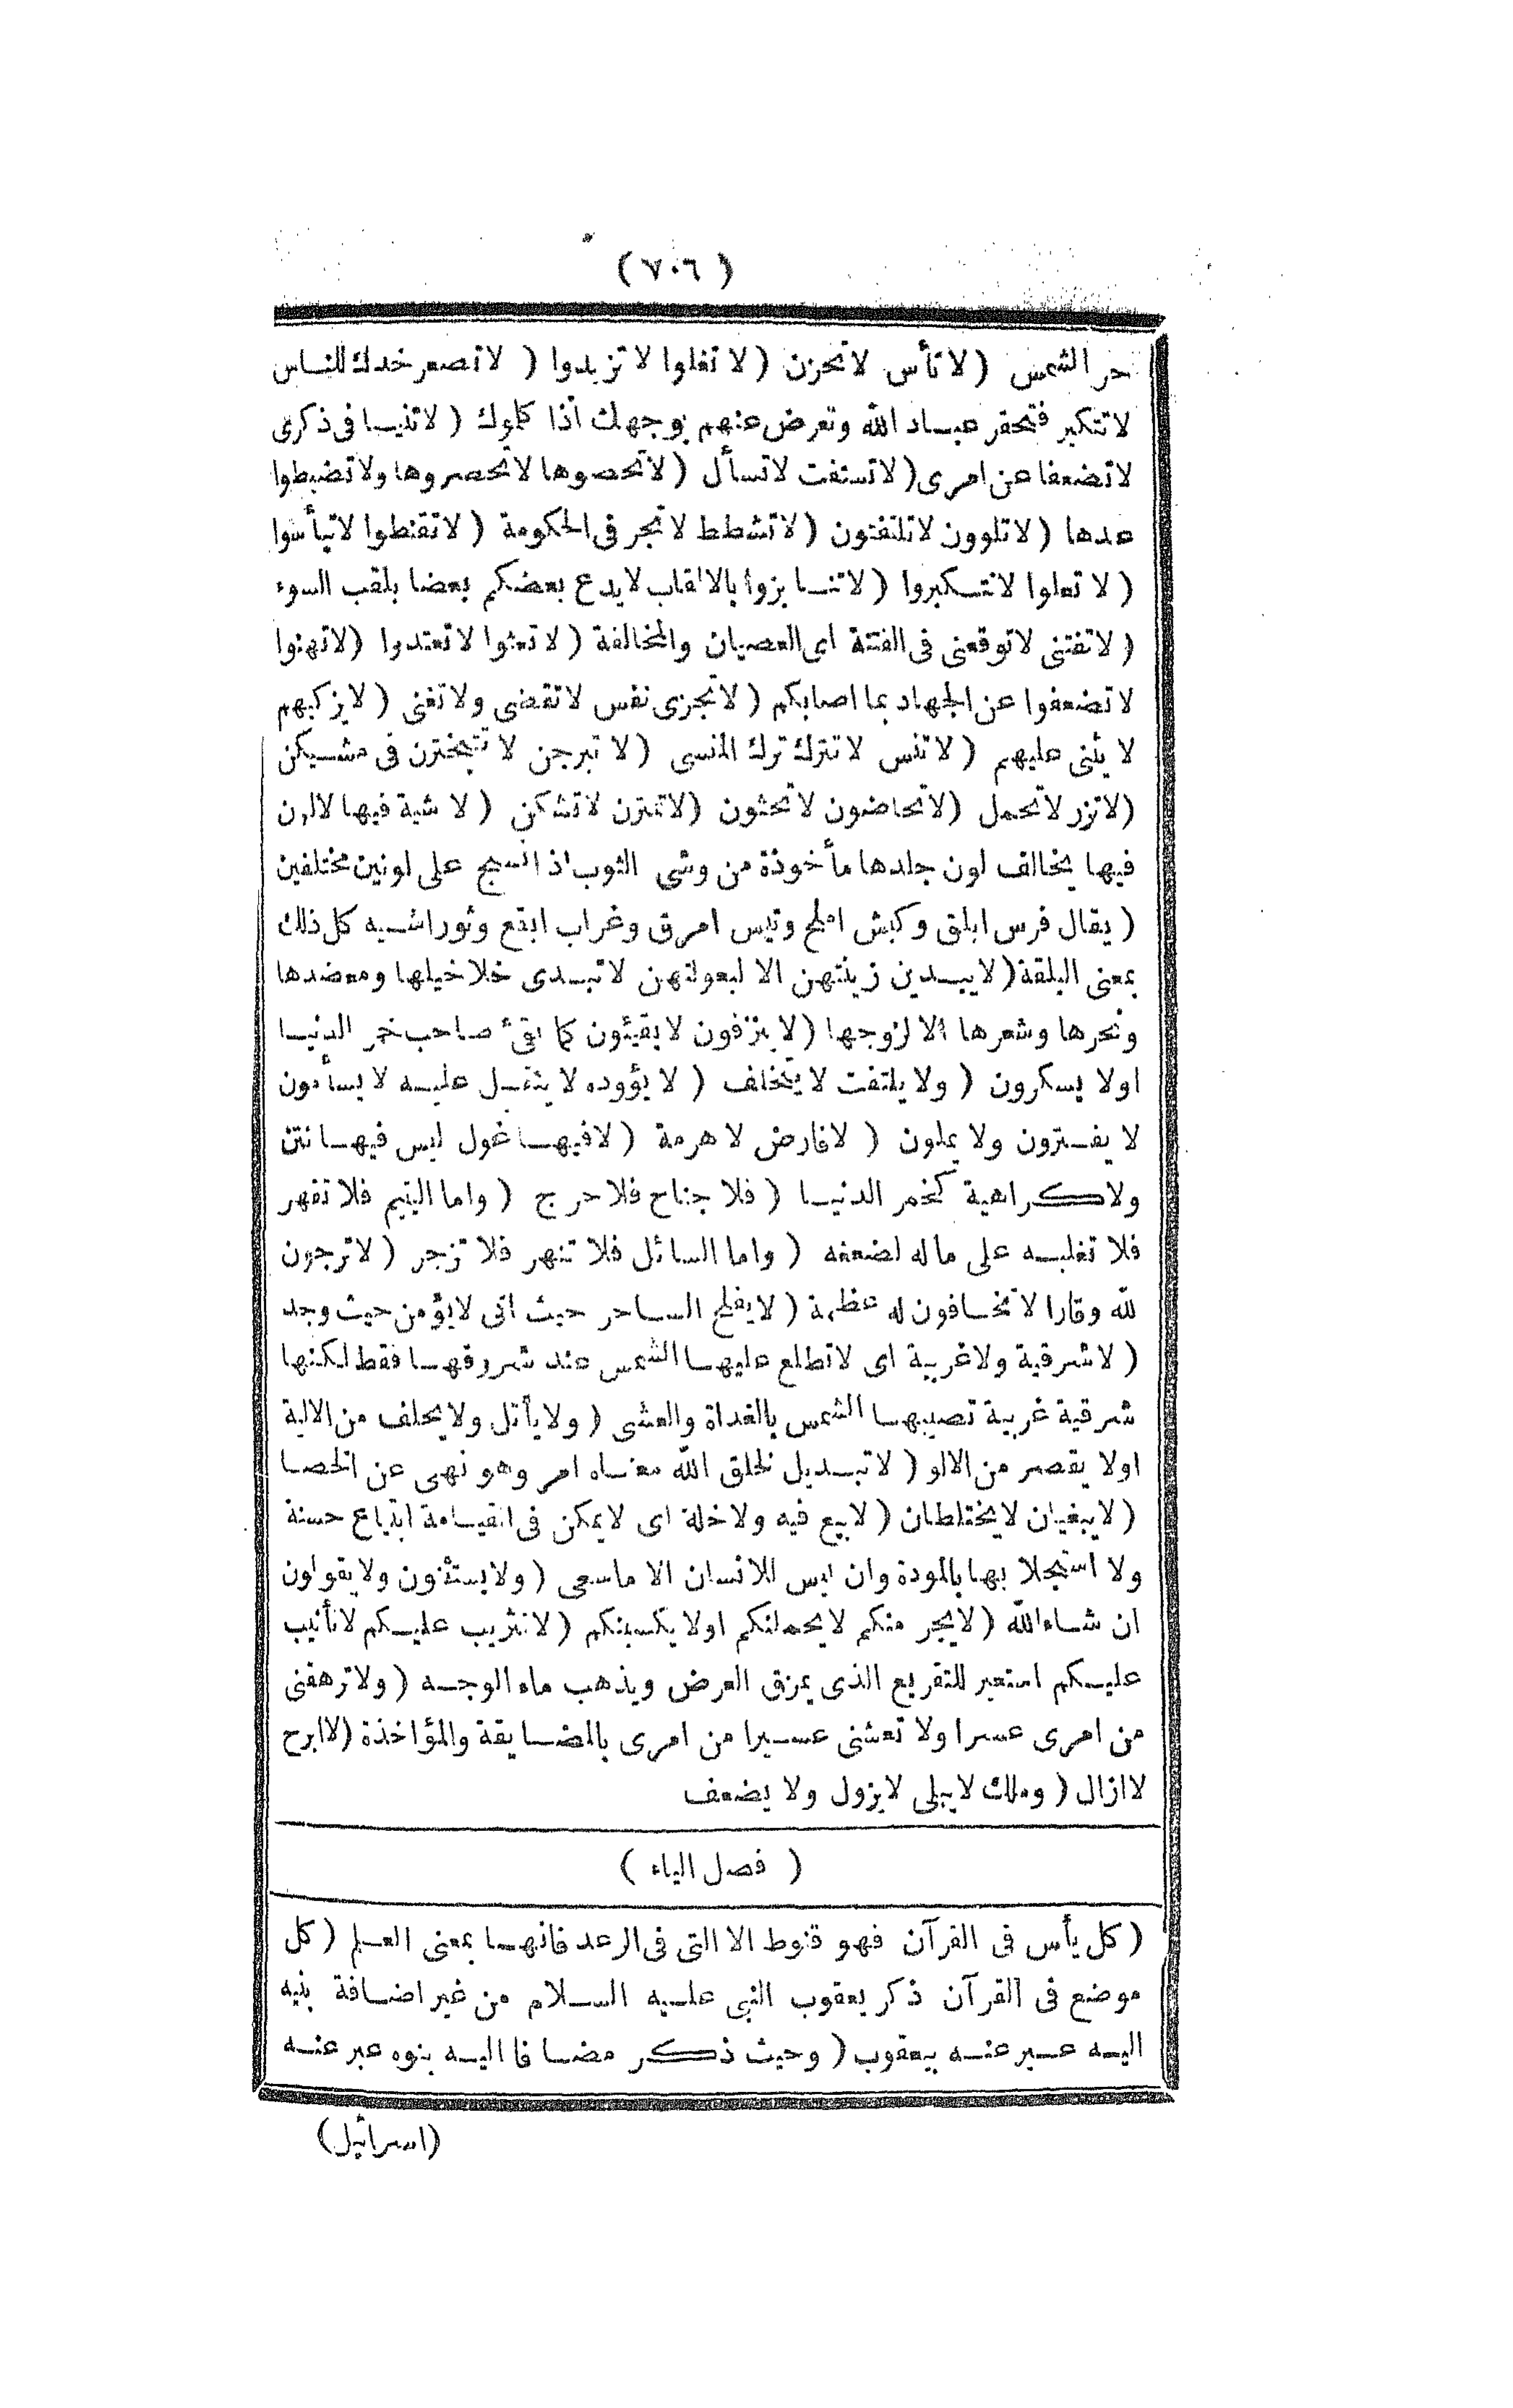 ( ٧٠٦ )
حر الشمس ( لا تأس لا تحزن ( لا تغلوا لا تزيدوا ( لا تصعر خدك للناس
لا تتكبر فتحقر عباد الله وتعرض عنهم بوجهك اذا كلوك ( لا تنيا فى ذكرى
لا تضعفا عن امرى ( لا تستفت لا تسأل ( لا تحصوها لا تحصروها ولا تضبطوا
عدها ( لا تلوون لا تلتفتون ( لا تشطط لا تجر فى الحكومة ( لا تقنطوا لا تيأسوا
( لا تعلوا لا تتكبروا ( لا تنابزوا بالالقاب لا يدع بعضكم بعضا بلقب السوء
( لا تفتنى لا توقعنى فى الفتنة اى العصيان والمخالفة ( لا تعثوا لا تعتدوا ( لا تهنوا
لا تضعفوا عن الجهاد بما اصابكم ( لا تجزى نفس لا تقضى ولا تغنى ( لا يزكيهم
لا يثنى عليهم ( لا تنس لا تترك ترك المنسى ( لا تبرجن لا تتبخترن فى مشيكن
( لا تزر لا تحمل ( لا تحاضون لا تحثون ( لا تمترن لا تشكن ( لا شية فيها لا لون
فيها يخالف لون جلدها مأخوذة من وشى الثوب اذ انسج على لونين مختلفين
( يقال فرس ابلق وكبش املح وتيس امرق وغراب ابقع وثور اشيه كل ذلك
بمعنى البلقة ( لا يبدين زينتهن الا لبعولتهن لا تبدى خلاخيلها ومعضدها
ونحرها وشعرها الا لزوجها ( لا ينزفون لا يقيئون كما يقئ صاحب خمر الدنيا
اولا يسكرون ( ولا يلتفت لا يتخلف ( لا يؤوده لا يثقل عليه لا يسأمون
لا يفترون ولا يملون ( لا فارض لا هرمة ( لا فيها غول ليس فيها نتن
ولا كراهية كخمر الدنيا ( فلا جناح فلا حرج ( واما اليتيم فلا تقهر
فلا تغلبه على ماله لضعفه ( واما السائل فلا تنهر فلا تزجر ( لا ترجون
لله وقارا لا تخافون له عظمة ( لا يفلح الساحر حيث اتى لا يؤمن حيث وجد
( لا شرقية ولا غربية اى لا تطلع عليها الشمس عند شروقها فقط لكنها
شرقية غربية تصيبها الشمس بالغداة والعشى ( ولا يأتل ولا يحلف من الالية
اولا يقصر من الالو ( لا تبديل لخلق الله معناه امر وهو نهى عن الخصا
( لا يبغيان لا يختلطان ( لا بيع فيه ولا خلة اى لا يمكن فى القيامة ابتياع حسنة
ولا استجلا بها بالمودة وان ليس للانسان الا ما سعى ( ولا يستثنون ولا يقولون
ان شاء الله ( لا يجر منكم لا يحملنكم اولا يكسبنكم ( لا تثريب عليكم لا تأنيب
عليكم استعير للتقريع الذى يمزق العرض ويذهب ماء الوجه ( ولا ترهقنى
من امرى عسرا ولا تغشنى عسيرا من امرى بالمضايقة والمؤاخذة ( لا ابرح
لا ازال ( وملك لا يبلى لا يزول ولا يضعف
( فصل الياء )
( كل يأس فى القرآن فهو قنوط الا التى فى الرعد فانها بمعنى العلم ( كل
موضع فى القرآن ذكر يعقوب النبى عليه السلام من غير اضافة بنيه
اليه عبر عنه بيعقوب ( وحيث ذكر مضافا اليه بنوه عبر عنه
( اسرائيل )